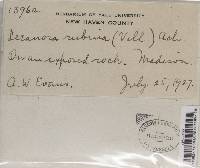 1396a
HERBARIUM OF YALE UNIVERSITY
NEW HAVEN COUNTY
Lecanora rubina (Vill) Ach
On an exposed rock. Madison.
A. W. Evans. July 25, 1927.